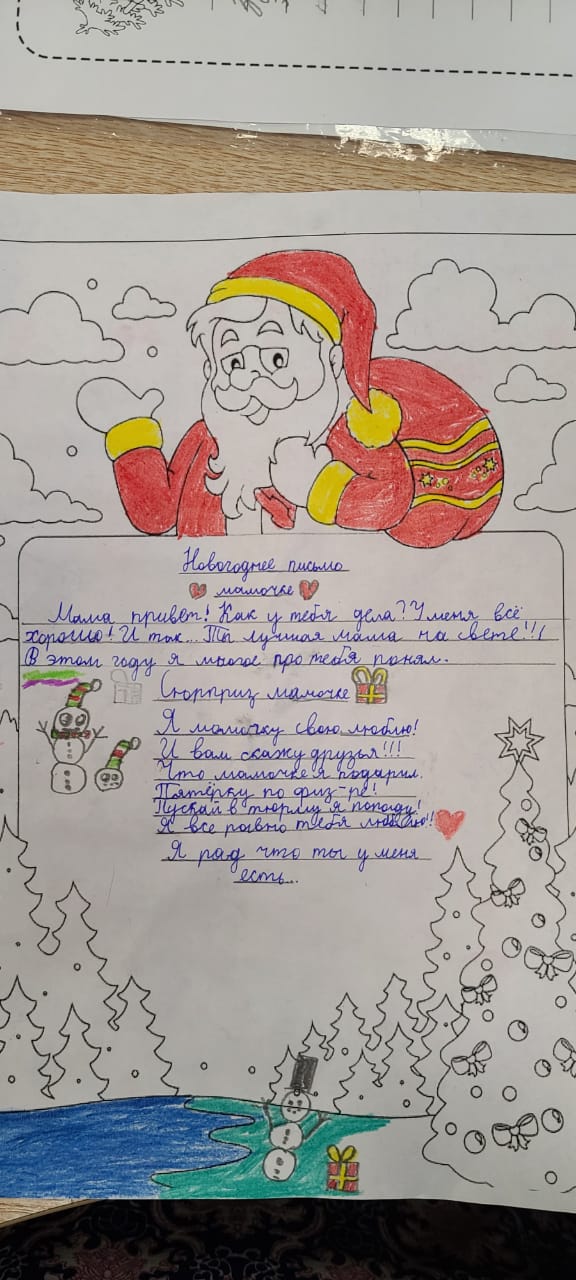 Новогоднее письмо
мамочке
Мама привет! Как у тебя дела? У меня всё
хорошо! И так... Ты лучшая мама на свете!!!
В этом году я многое про тебя понял.
Сюрприз мамочке
Я мамочку свою люблю!
И вам скажу друзья!!!
Что мамочке я подарил.
Пятёрку по физ-ре!
Пускай в тюрьму я попаду!
Я все равно тебя люблю!!
Я рад что ты у меня
есть...